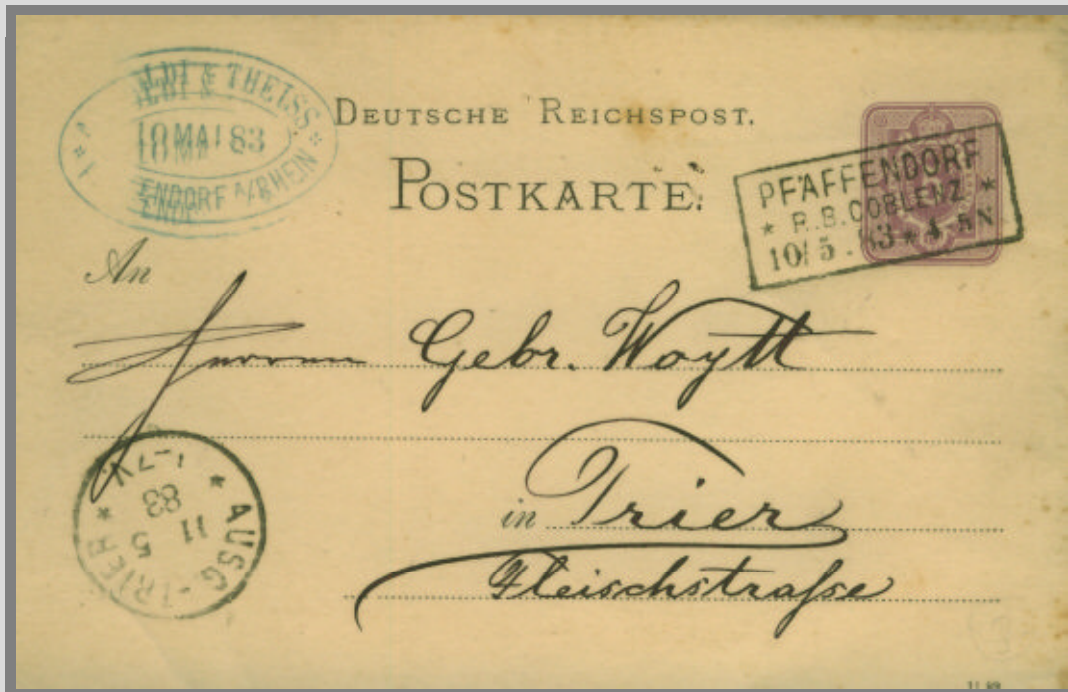 & THEISS
10 MAI 83
ENDORF A/RHEIN
DEUTSCHE REICHSPOST.
POSTKARTE.
PFAFFENDORF
* R.B.COBLENZ *
10/5.83*4-5N
An
Herren Gebr. Woytt
in Trier
Fleischstraſse
* AUSG. TRIER *
11 5
83